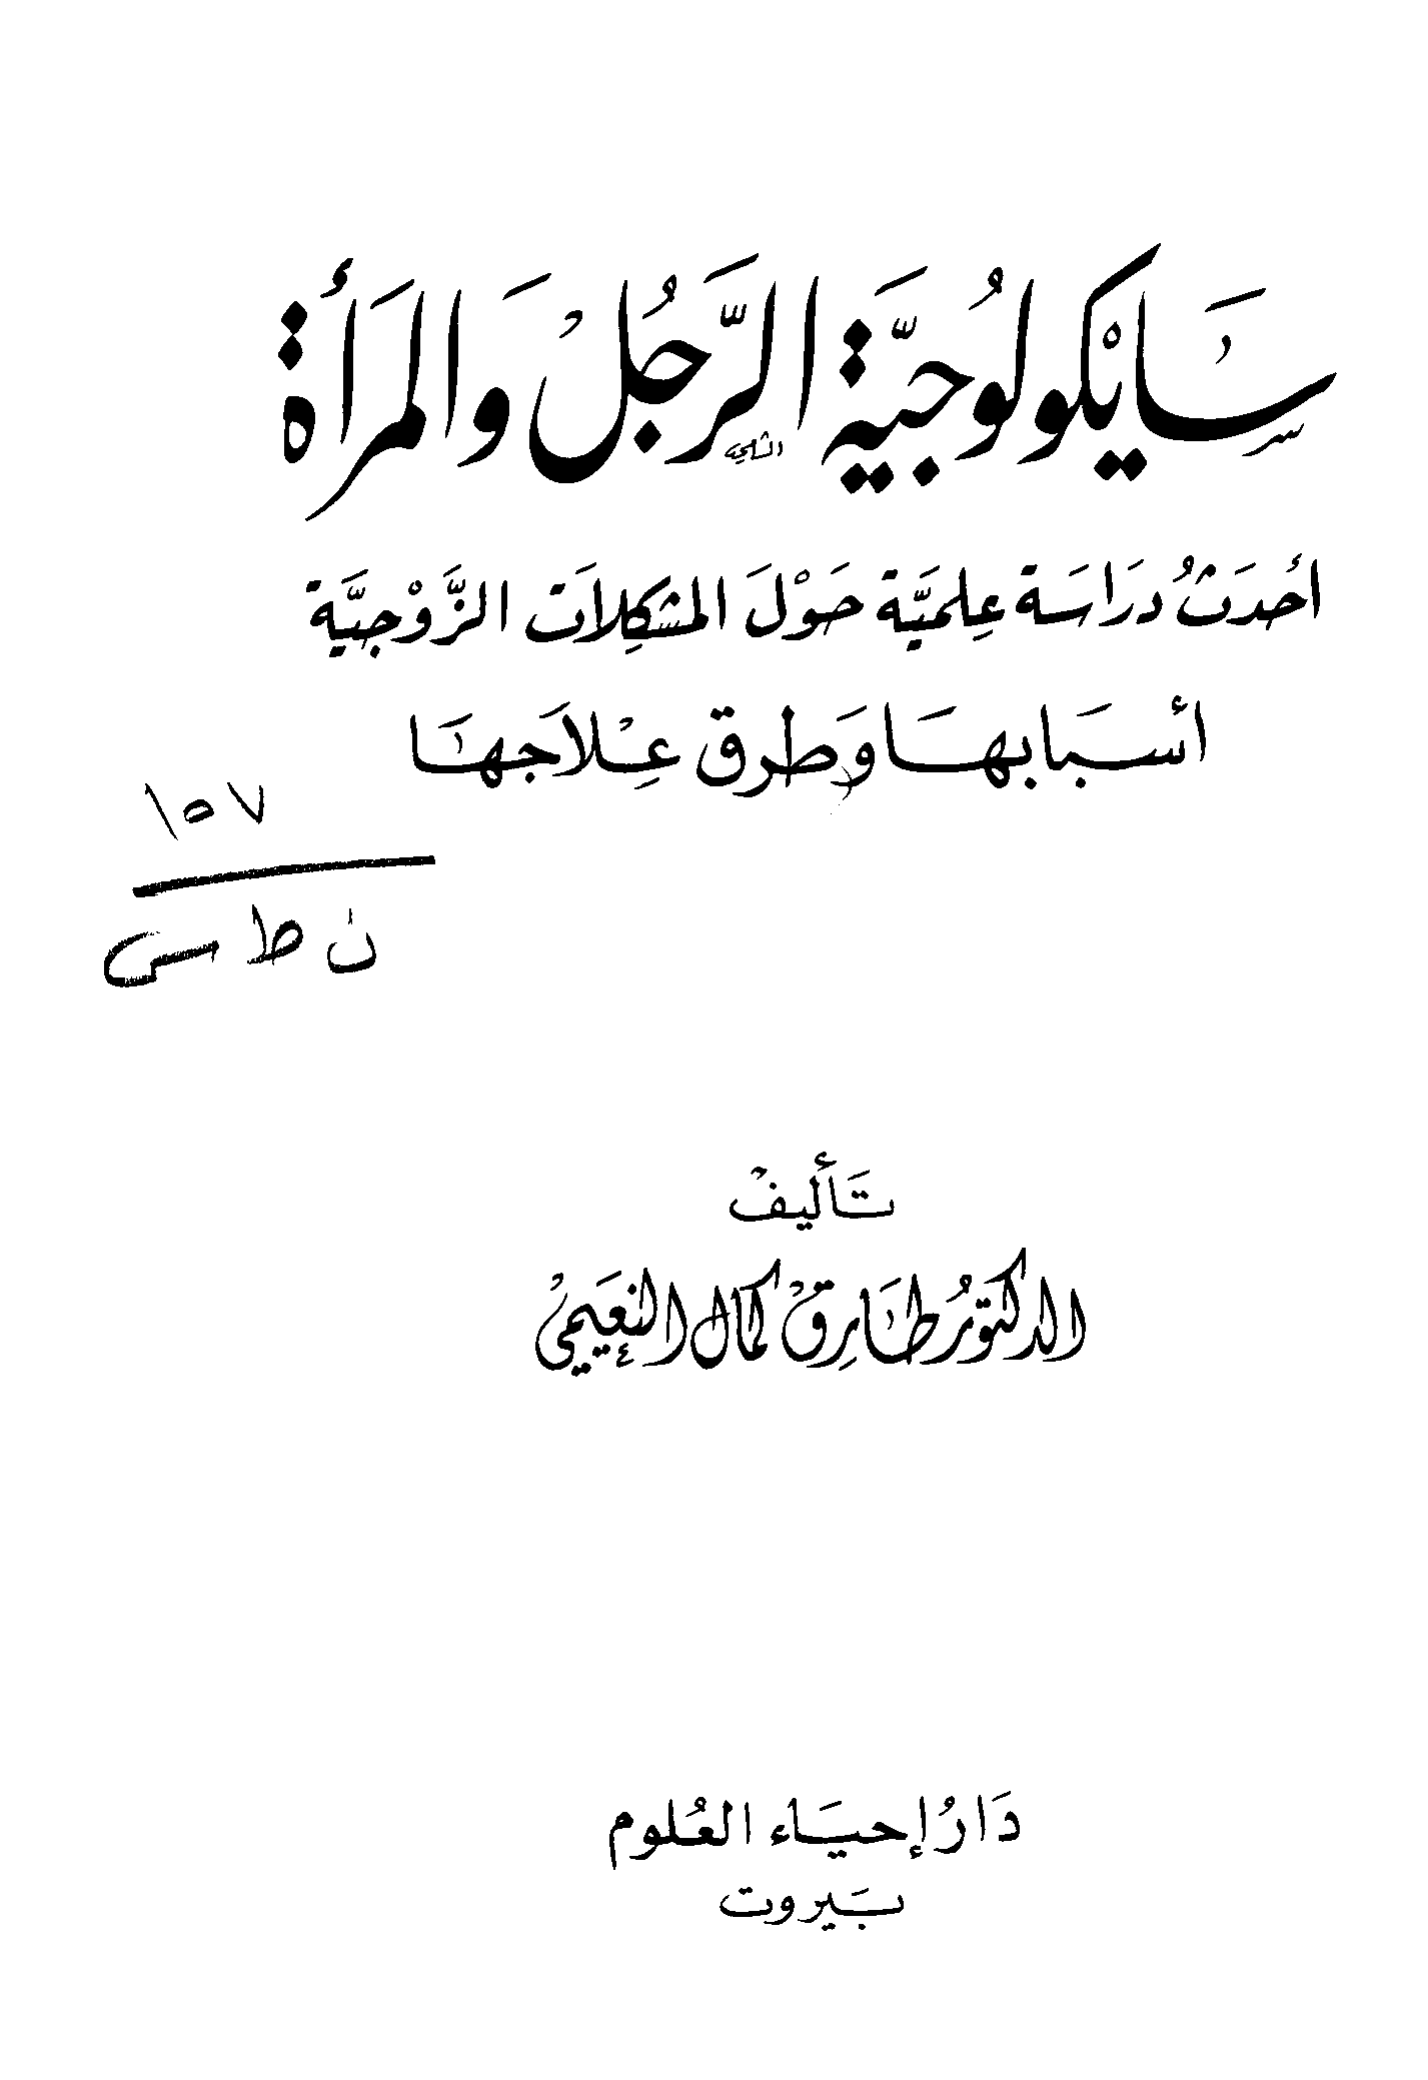 سَايْكولُوجيَّة الرَّجُلْ وَالمَرأة
أحدَثُ درَاسَة عِلميَّة حَوْلَ المشكِلَات الزَّوْجيَّة
أسبَابهَا وَطرق عِلْاجهَا
١٥٧
ن ط س
تَأليفْ
الدكتور طَارِقْ كمال النعَيْمي
دَارُ إحيَاء العُلوم
بَيروت